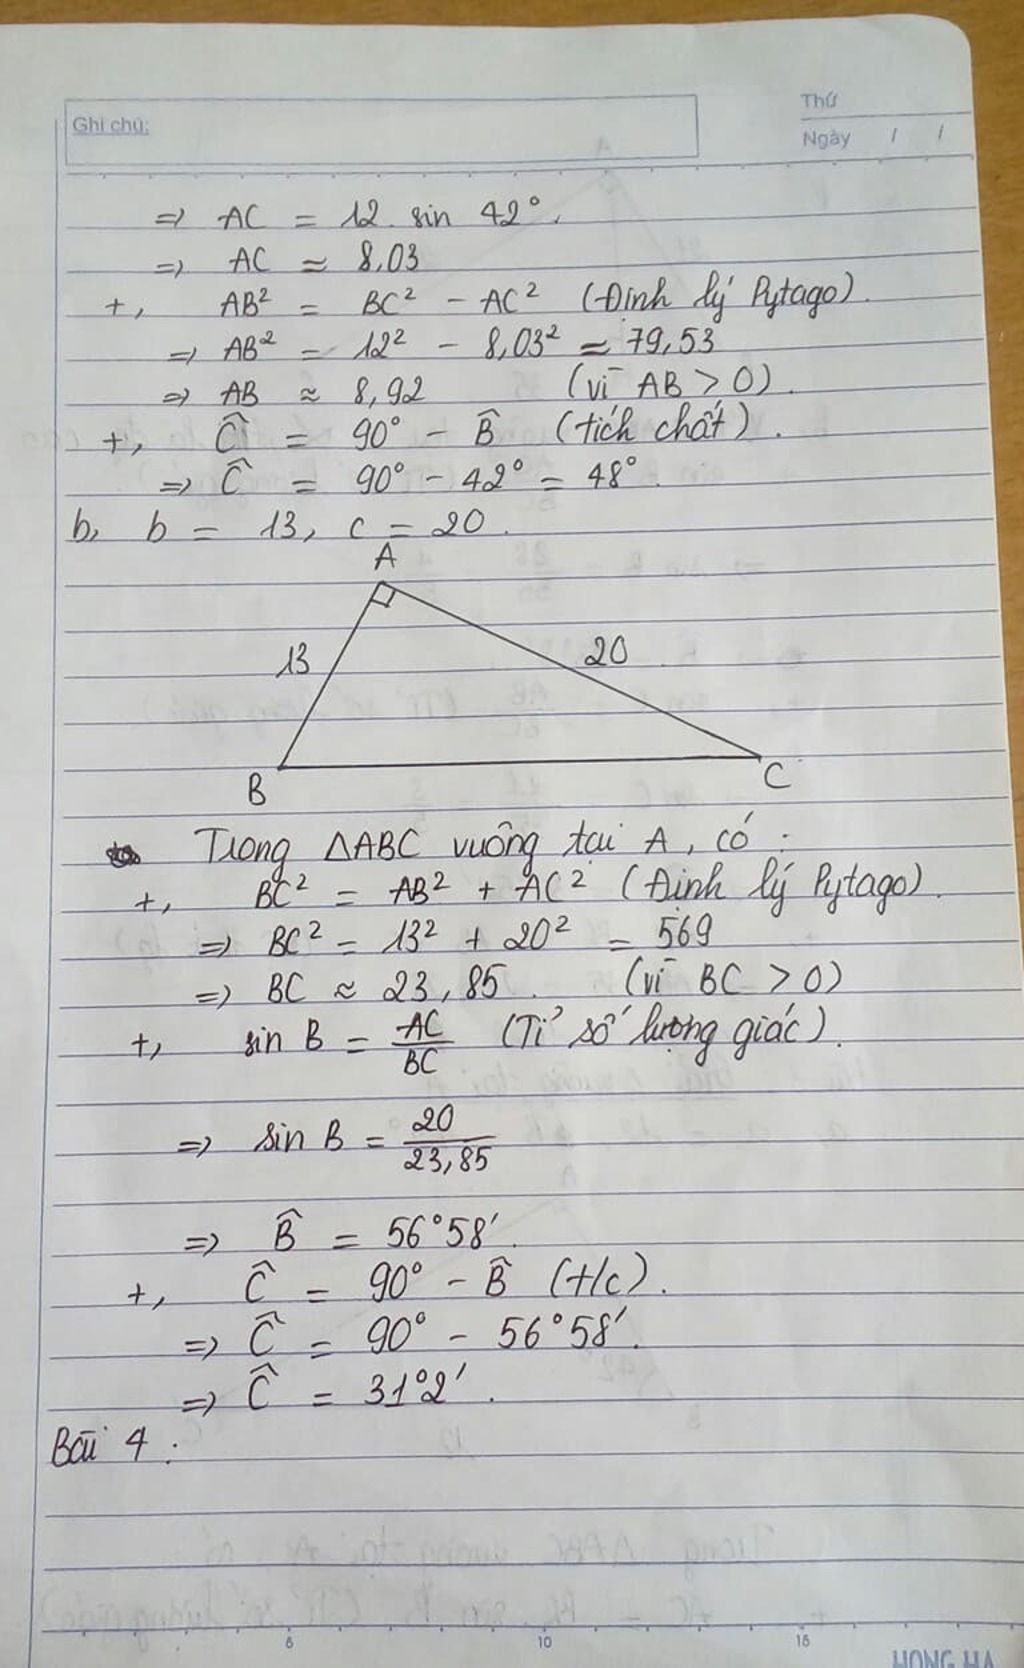 Ghi chú:
Thứ
Ngày / /
=> AC = 12 . sin 42°.
=> AC ≈ 8,03
+, AB² = BC² - AC² (Định lý Pytago).
=> AB² = 12² - 8,03² ≈ 79,53
=> AB ≈ 8,92 (vì AB > 0).
+, Ĉ = 90° - B̂ (tích chất).
=> Ĉ = 90° - 42° = 48°.
b, b = 13, c = 20.
A
13
20
B
C
Trong ΔABC vuông tại A, có :
+, BC² = AB² + AC² (Định lý Pytago).
=> BC² = 13² + 20² = 569
=> BC ≈ 23,85. (vì BC > 0)
+, sin B = AC/BC (Tỉ số lượng giác).
=> sin B = 20/23,85
=> B̂ = 56°58'.
+, Ĉ = 90° - B̂ (t/c).
=> Ĉ = 90° - 56°58'.
=> Ĉ = 31°2'.
Bài 4 :
6 10 15
HONG HA